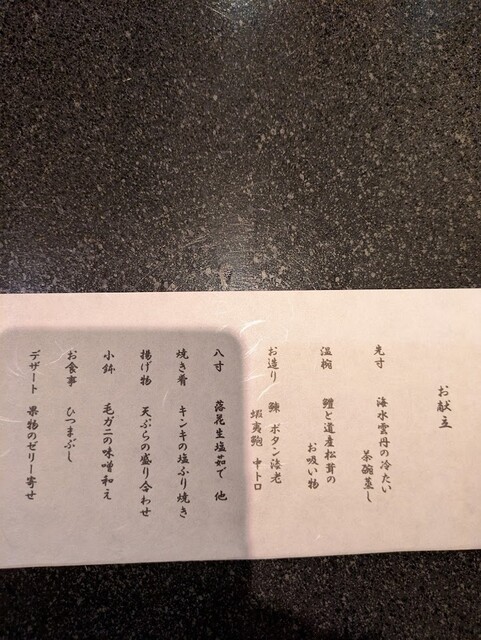 お献立
先寸 海水雲丹の冷たい
茶碗蒸し
温椀 鱧と道産松茸の
お吸い物
お造り ボタン海老
蝦夷鮑 中トロ
八寸 落花生塩茹で 他
焼き肴 キンキの塩ふり焼き
揚げ物 天ぷらの盛り合わせ
小鉢 毛ガニの味噌和え
お食事 ひつまぶし
デザート 果物のゼリー寄せ